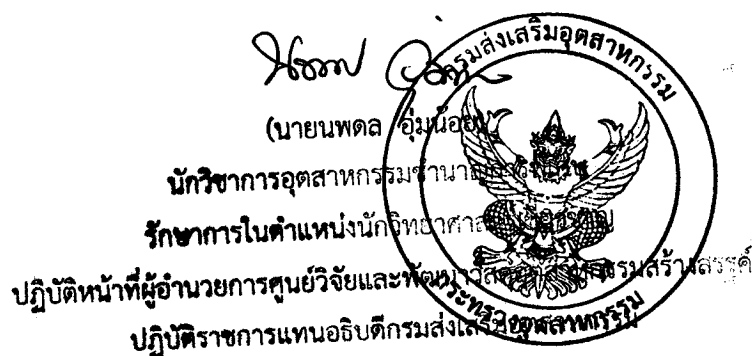 กรมส่งเสริมอุตสาหกรรม
(นายนพดล อุ่มน้อย)
นักวิชาการอุตสาหกรรมชำนาญการพิเศษ
รักษาการในตำแหน่งนักวิทยาศาสตร์เชี่ยวชาญ
ปฏิบัติหน้าที่ผู้อำนวยการศูนย์วิจัยและพัฒนา อุตสาหกรรมสร้างสรรค์
ปฏิบัติราชการแทนอธิบดีกรมส่งเสริมอุตสาหกรรม
กระทรวงอุตสาหกรรม